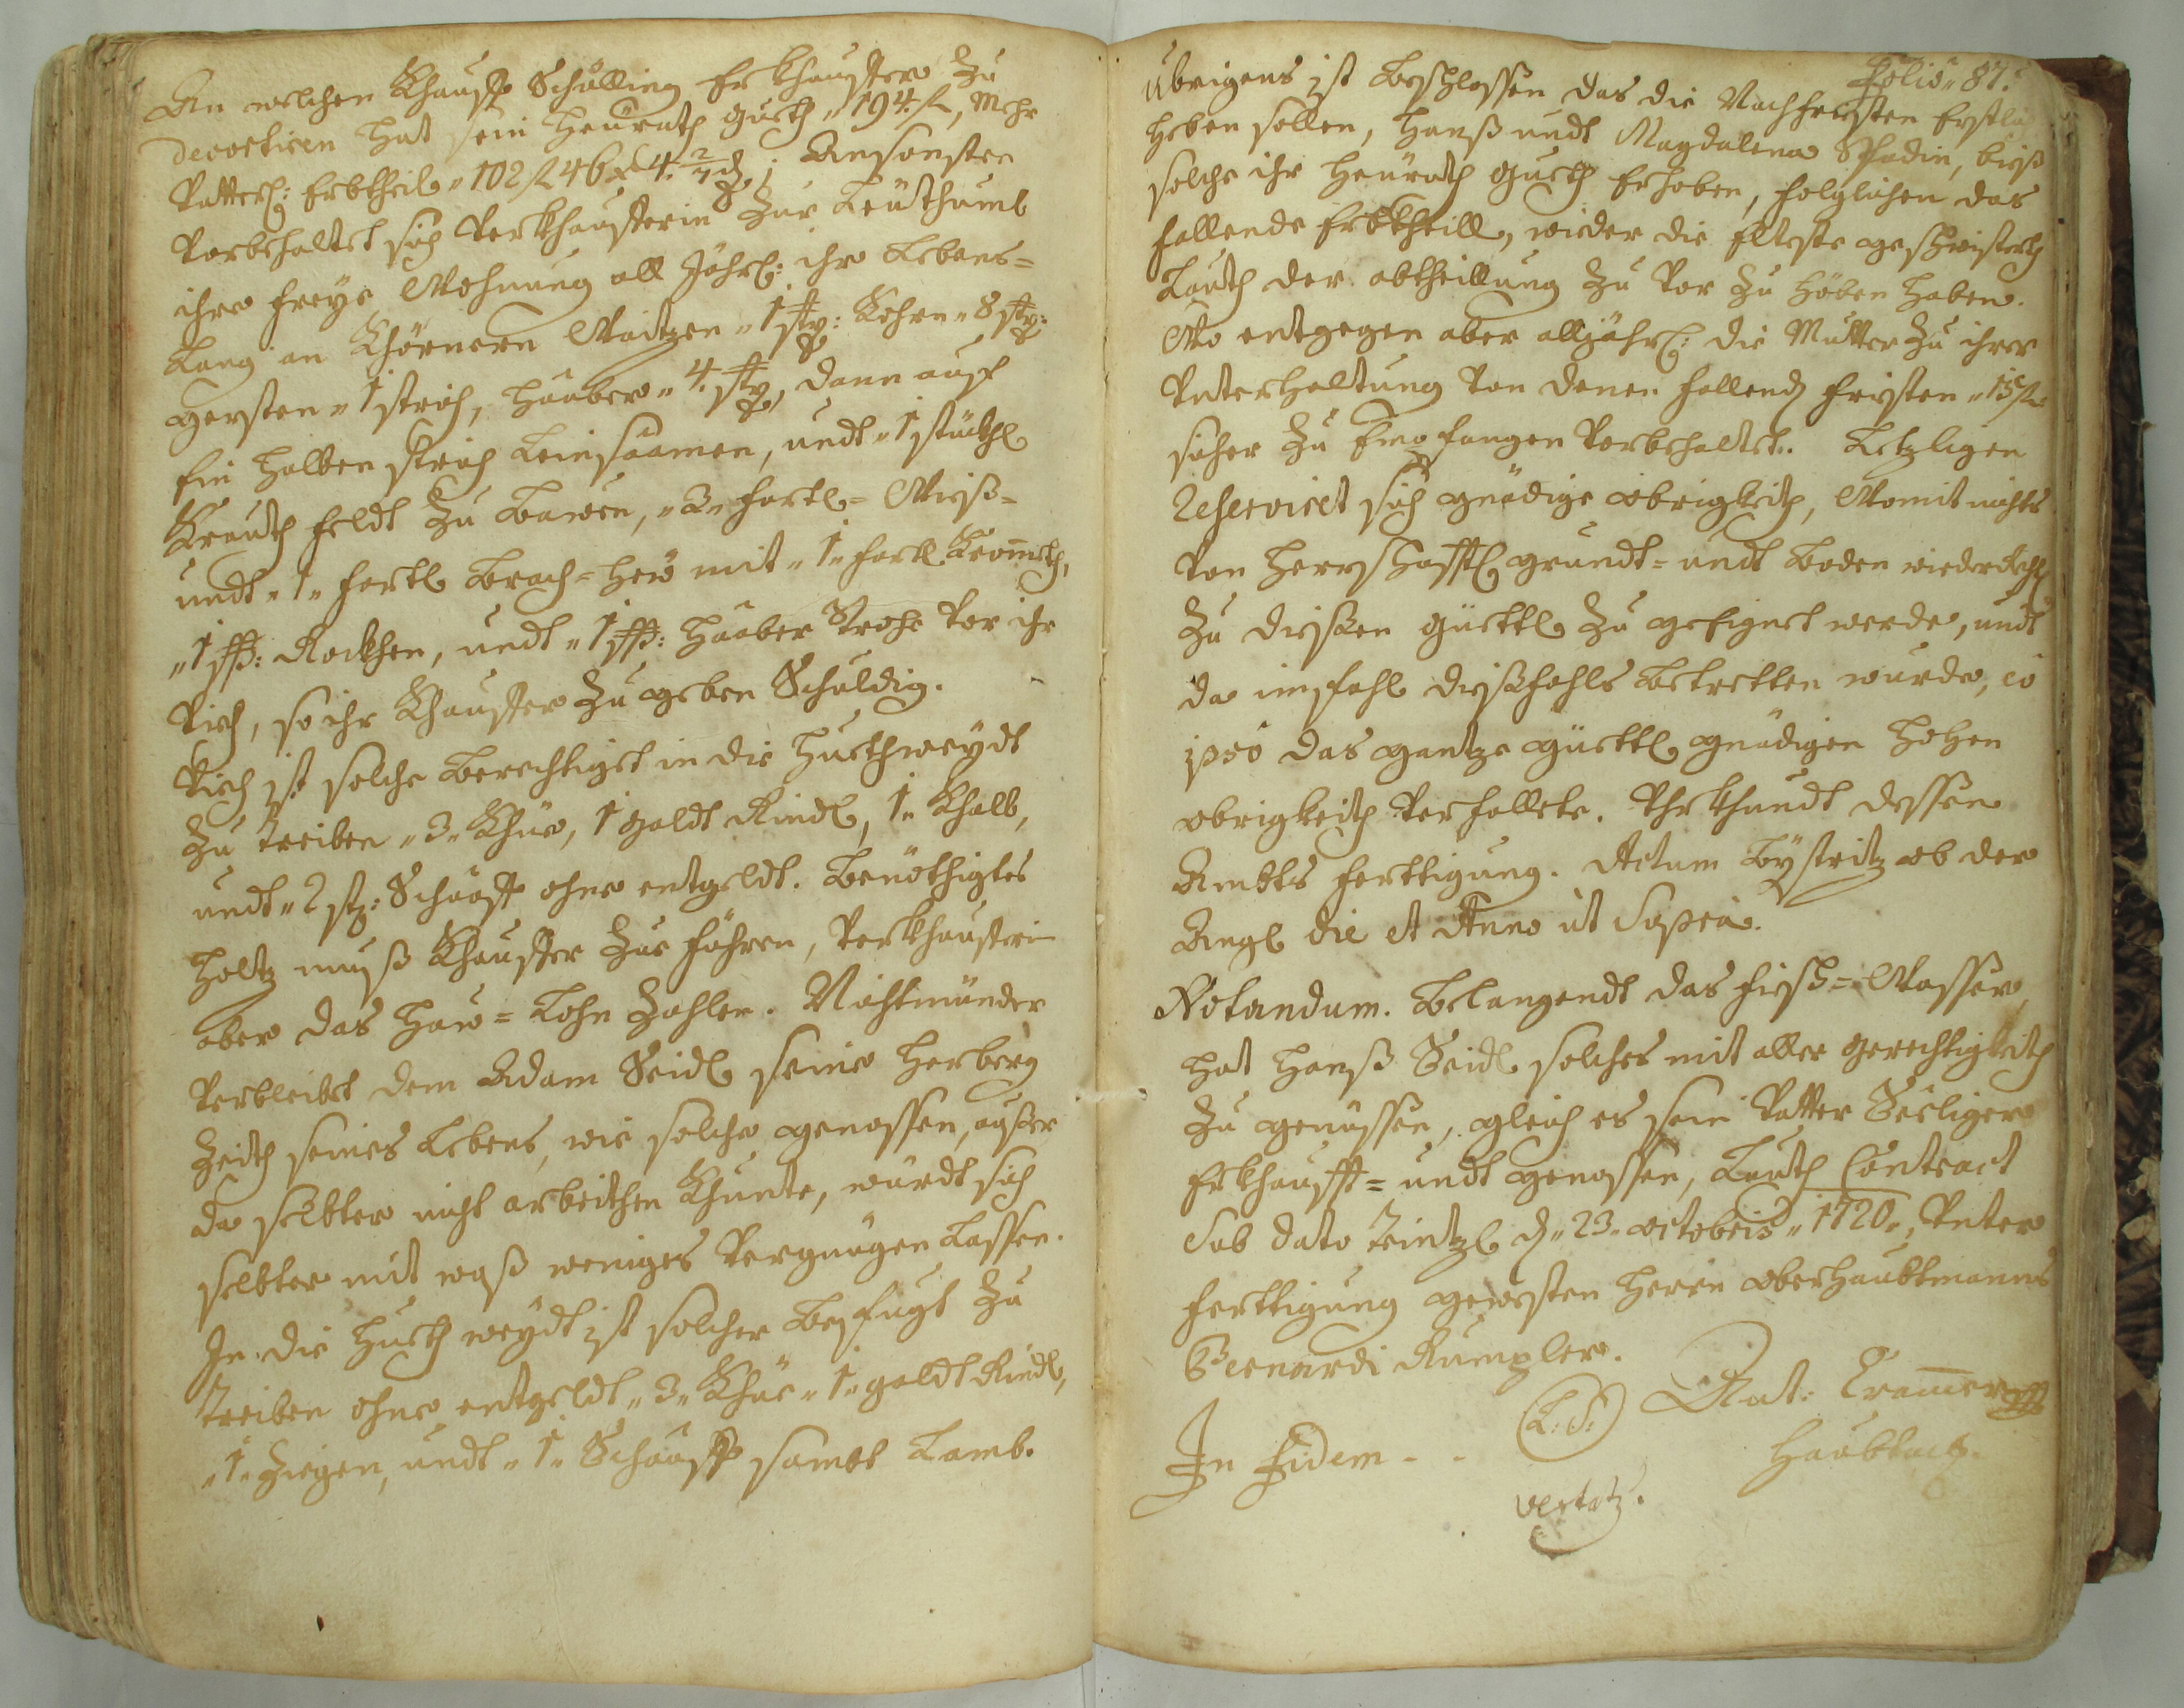 An welchen Khauff Schilling Erkhauffer zu
decortiren hat sein Heürath gueth „194 fl, Mehr
Vatterl: Erbtheil „102 fl 46 x 4 2/7 d; Ansonsten
Vorbehaltet sich Verkhaufferin zur Leüthumb
ihre freye Wohnung all Jährl: ihr Lebens=
Lang an Khörnern Waitzen „1 str: Kohrn „8 str:
gersten „1 strich, Haaber „4 str, dann auch
Ein halben strich Leinsaamen, undt „1 stückhl
Krauth feldt zu Bawen, „2„ fartl= Wiß=
undt „1„ fartl Brach=Hew mit „1„ fartl Krom̄eth,
„1 ßß: Rockhen, undt „1 ßß: Haaber Strohe Vor ihr
Vich, so ihr Khauffer zu geben Schuldig.
Vich ist solche Berechtiget in die Huethweydt
zu Treiben „3„ Khüe, 1 galdt Rindl, 1„ Khalb,
undt „2 st: Schaaff ohne entgeldt. Benöthigtes
Holtz muß Khauffer zue führen, Verkhaufferin
aber das Haw=Lohn Zahlen. Nichtmünder
Verbleibet dem Adam Seidl seine Herberg
Zeith seines Lebens, wie solche genossen, ausser
da selbter nicht arbeithen Khunte, würdt sich
selbter mit waß weniges Vergnügen Lassen.
In die Hueth weydt ist solcher Befugt zu
Treiben ohne entgeldt „3„ Khüe „1„ galdt Rindl,
„1„ Ziegen, undt „1„ Schaaff sambt Lamb.
Folio „87.
übrigens ist Beschlossen das die Nachfristen Erstlich
heben sollen, Hanß undt Magdalena, biß
solche ihr Heürath gueth Erhoben, folglichen das
fallende Erbtheill, wieder die Elteste geschwisterth
Lauth der abtheillung zu Vor zu höben haben.
Wo entgegen aber alljährl: die Mutter zu ihrer
Unterhaltung Von denen fallend fristen „15 fl
sicher zu Empfangen Vorbehaltet. Letzligen
Reserviret sich gnädige obrigkeith, Womit nichts
Von Herrschafftl grundt= undt Boden wieder Rechtl
zu dießen güettl zu geeignet werde, undt
da im fahl dießfahls Betretten wurde, eo
ipso das gantze güettl gnädigen Hohen
obrigkeith Verfallete. Uhrkhundt dessen
Ambts ferttigung. Actum Bystritz ob der
Angl die et Anno ut Supra.
Notandum. Belangendt das Fisch=Wasser,
hat Hanß Seidl solches mit aller gerechtigkeith
zu genüssen, gleich es sein Vatter Seeliger
Erkhaufft= undt genossen, Lauth Contract
Sub dato Teintzl d „23„ octobris „1720„, Unter
ferttigung gewesten Herrn oberhaubtmanns
Bernardi Rumpler.
In Fidem - - (L: S:) Ant: Cram̄er
Haubtm.
vertatz.